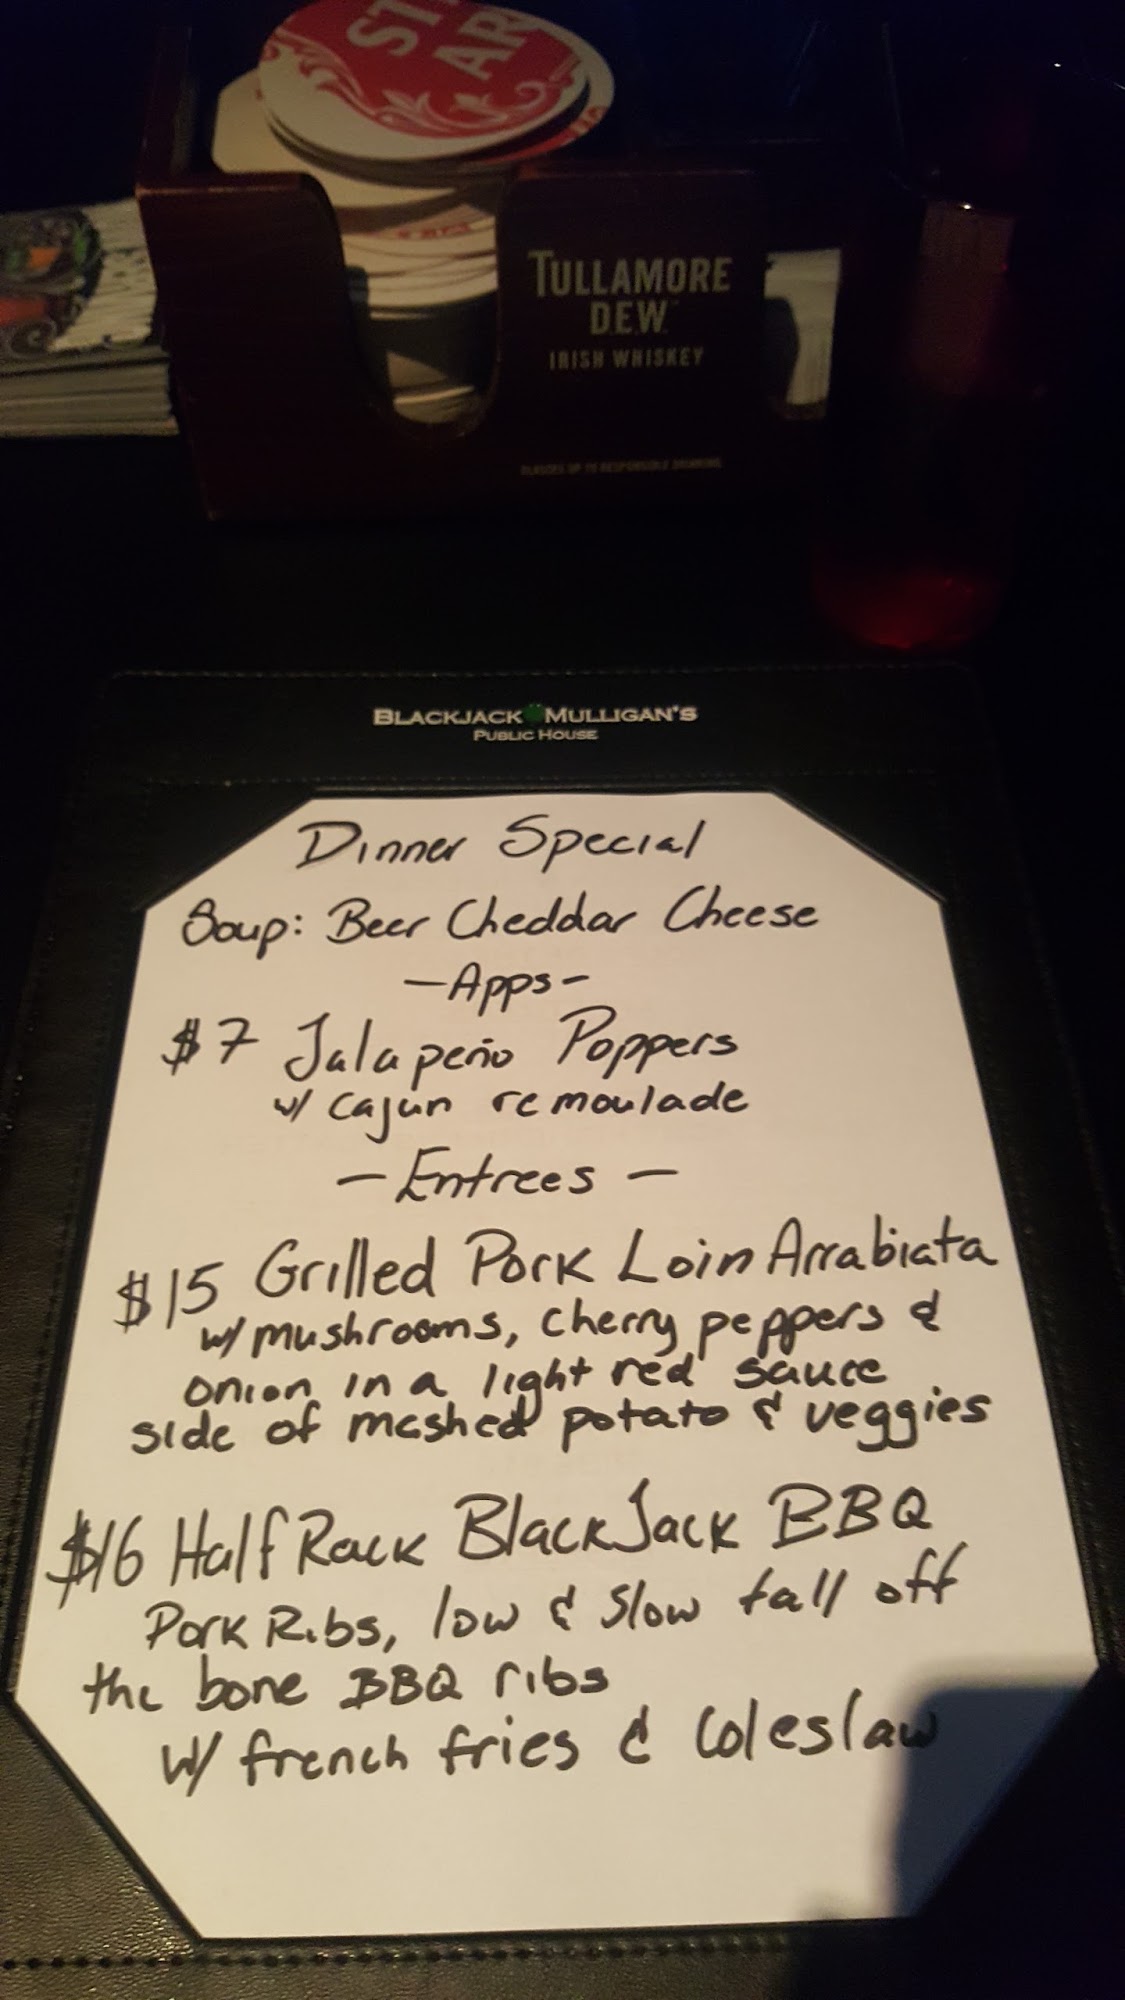 ST
AR
TULLAMORE
D.E.W.
IRISH WHISKEY
BLACKJACK MULLIGAN'S
PUBLIC HOUSE
Dinner Special
Soup: Beer Cheddar Cheese
-Apps-
$7 Jalapeño Poppers
w/ Cajun remoulade
- Entrees -
$15 Grilled Pork Loin Arrabiata
w/ mushrooms, cherry peppers &
onion in a light red sauce
side of mashed potato & veggies
$16 Half Rack BlackJack BBQ
Pork Ribs, low & slow fall off
the bone BBQ ribs
w/ french fries & Coleslaw